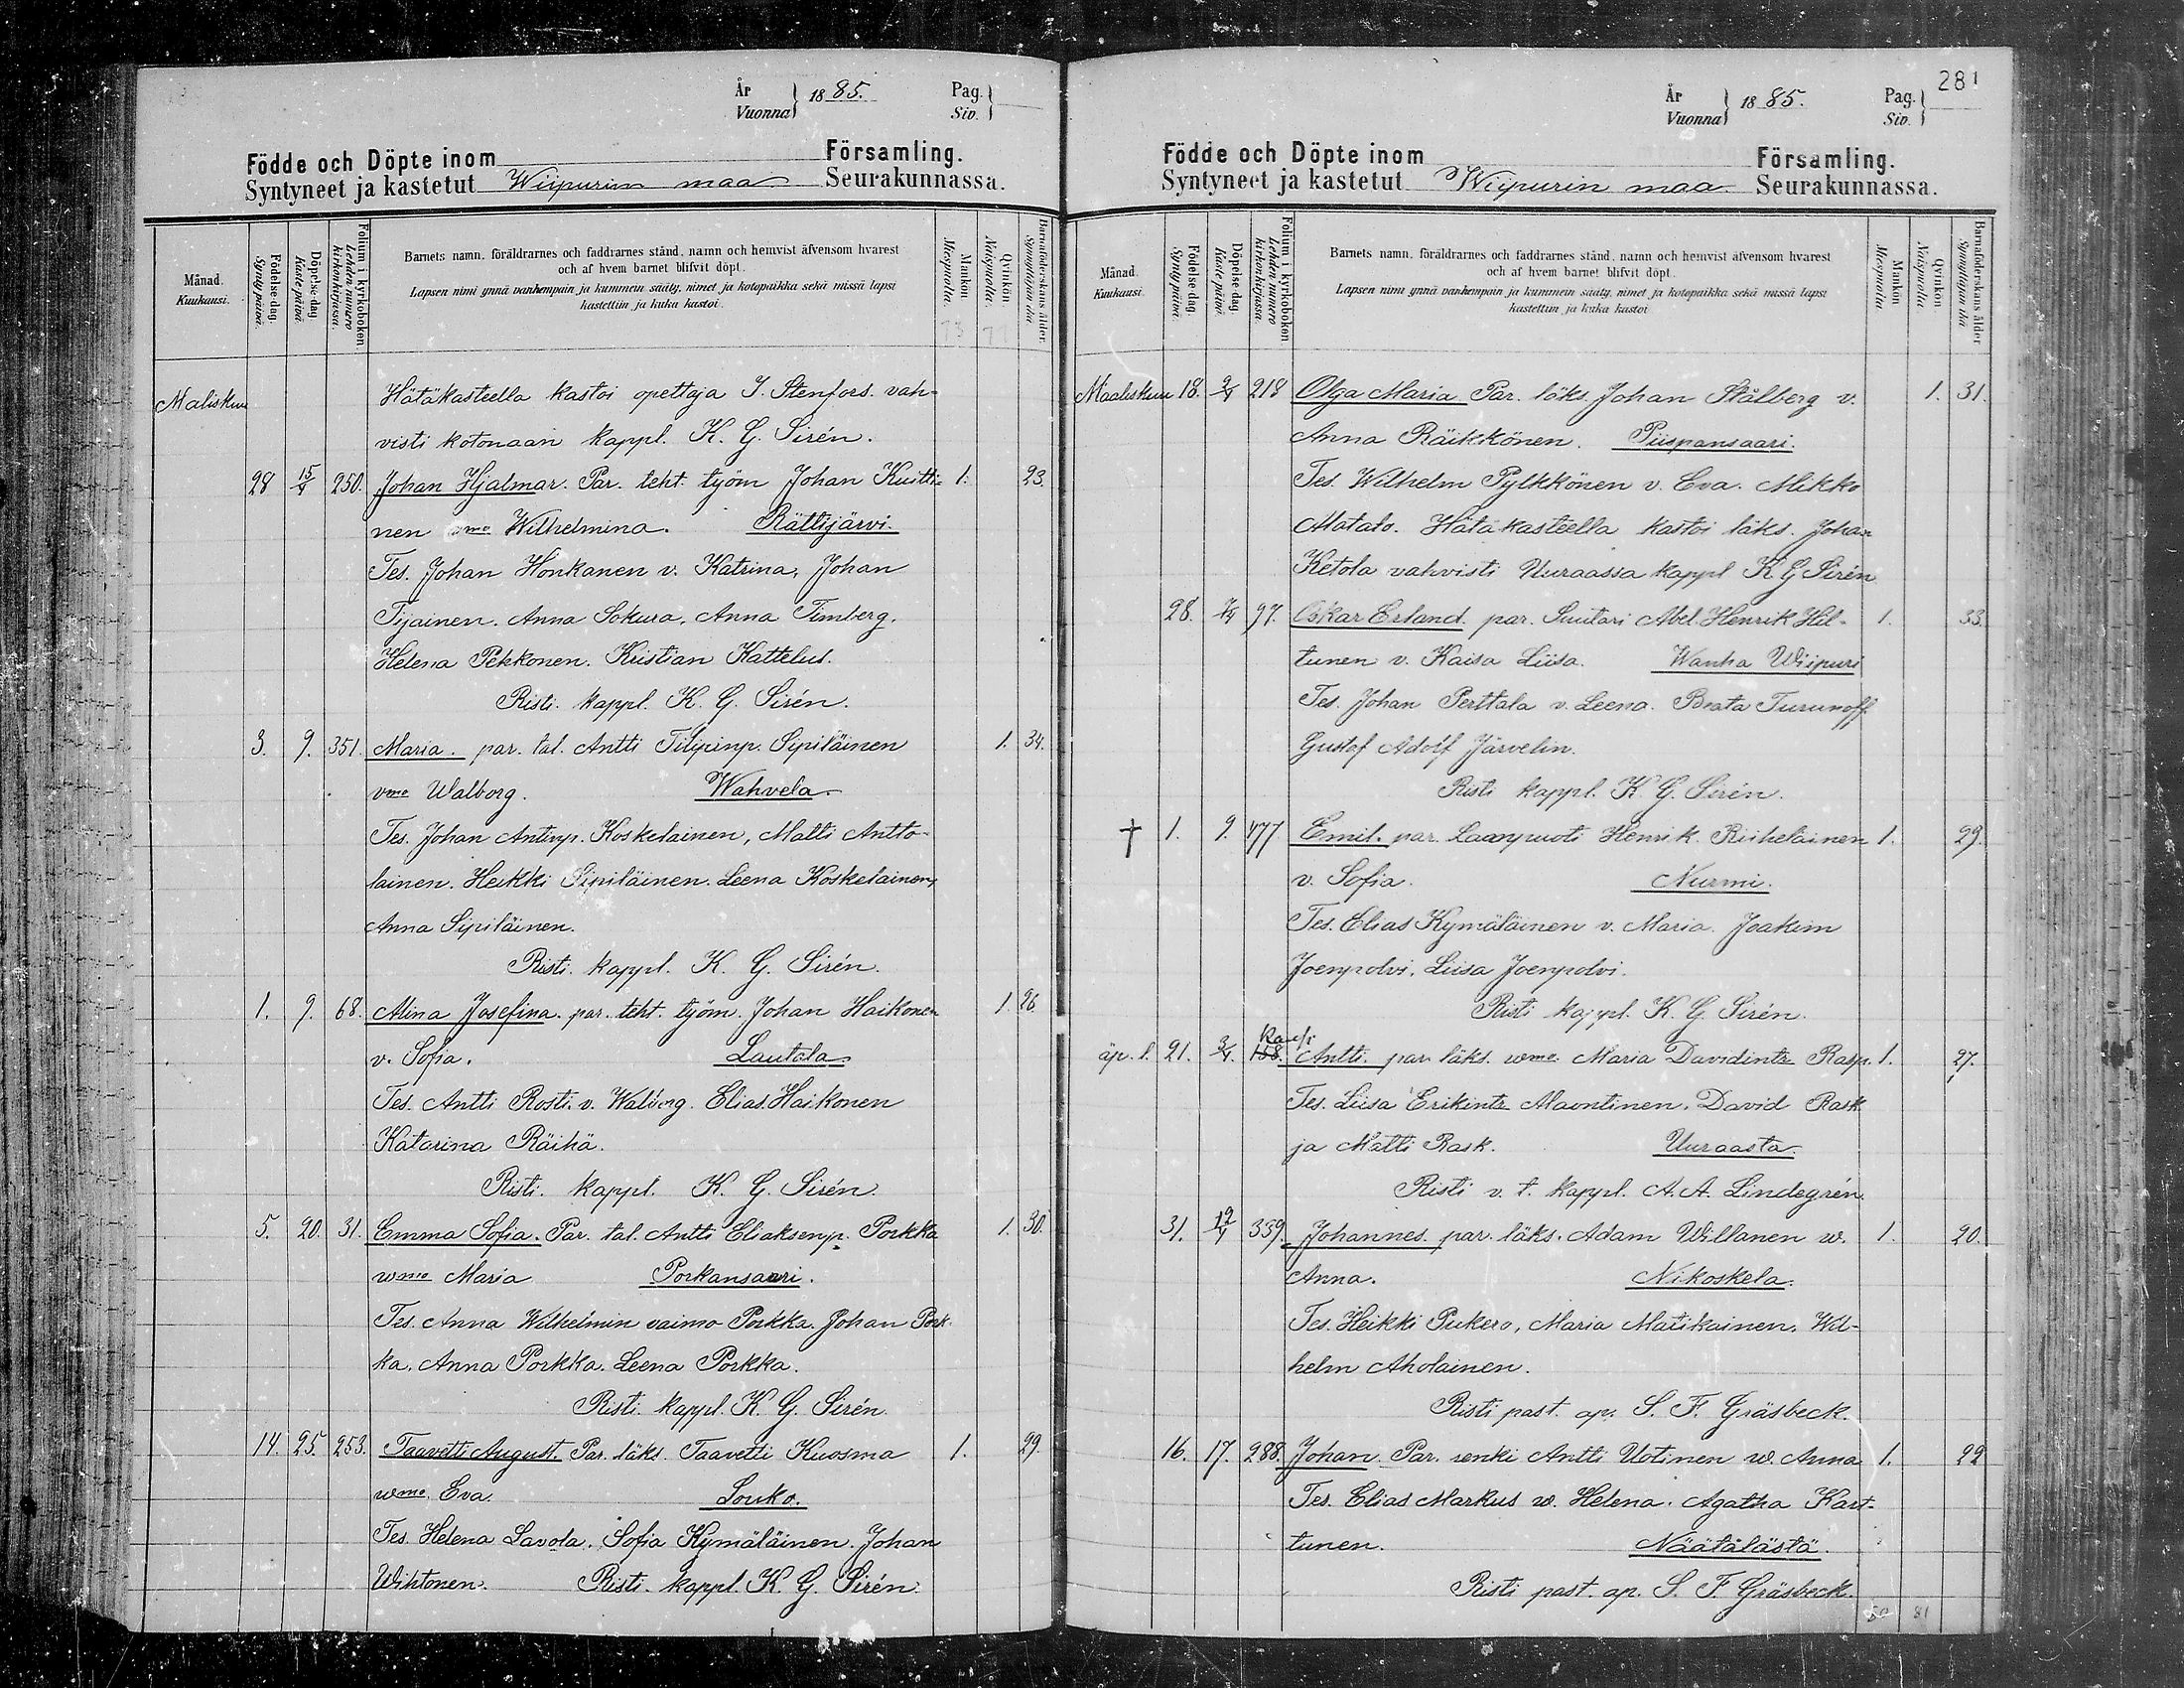 År
Vuonna } 1885. Pag.
Siv. }
Födde och Döpte inom Församling.
Syntyneet ja kastetut Wiipurin maa Seurakunnassa.
Månad. Kuukausi.
Födelse dag. Synty päivä.
Döpelse dag. Kaste päivä.
Folium i kyrkoboken Lehden numero kirkonkirjassa.
Barnets namn, föräldrarnes och faddrarnes stånd, namn och hemvist äfvensom hvarest
och af hvem barnet blifvit döpt.
Lapsen nimi ynnä vanhempain ja kummein sääty, nimet ja kotopaikka sekä missä lapsi
kastettiin ja kuka kastoi.
Mankön. Miespuolia.
Qvinkön. Naispuolia.
Barnaföderskans ålder. Synnyttäjän ikä
73 71
Maliskuu Hätäkasteella kastoi opettaja J. Stenfors. vah-
visti kotonaan kappl. K. G. Sirén.
28 15/4 250. Johan Hjalmar. Par. teht. työm Johan Kuitti- 1. 23.
nen vmo Wilhelmina. Rättijärvi.
Tes. Johan Honkanen v. Katrina, Johan
Tijainen. Anna Sokura, Anna Timberg.
Helena Pekkonen. Kristian Kattelus.
Risti. kappl. K. G. Sirén.
3. 9. 351. Maria. par. tal. Antti Filipinp. Sipiläinen 1. 34.
vmo Walborg. Wahvela
Tes. Johan Antinp. Koskelainen, Matti Antto-
lainen. Heikki Sipiläinen. Leena Koskelainen,
Anna Sipiläinen.
Risti. kappl. K. G. Sirén.
1. 9. 68. Alina Josefina. par. teht. työm. Johan Haikonen 1. 26.
v. Sofia. Lautala
Tes. Antti Rosti. v. Walborg. Elias Haikonen
Katarina Räihä.
Risti. kappl. K. G. Sirén.
5. 20. 31. Emma Sofia. Par. tal. Antti Eliaksenp. Porkka 1. 30.
wmo Maria Porkansaari.
Tes. Anna Wilhelmin vaimo Porkka. Johan Pork-
ka, Anna Porkka. Leena Porkka.
Risti. kappl. K. G. Sirén.
14. 25. 253. Taavetti August. Par. läks. Taavetti Kuosma 1. 29.
wmo. Eva. Souko.
Tes. Helena Savola. Sofia Kymäläinen. Johan
Wihtonen. Risti. kappl. K. G. Sirén.
281
År
Vuonna } 1885. Pag.
Siv. }
Födde och Döpte inom Församling.
Syntyneet ja kastetut Wiipurin maa Seurakunnassa.
Månad. Kuukausi.
Födelse dag. Synty päivä.
Döpelse dag. Kaste päivä.
Folium i kyrkoboken Lehden numero kirkonkirjassa.
Barnets namn, föräldrarnes och faddrarnes stånd, namn och hemvist äfvensom hvarest
och af hvem barnet blifvit döpt.
Lapsen nimi ynnä vanhempain ja kummein sääty, nimet ja kotopaikka sekä missä lapsi
kastettiin ja kuka kastoi
Mankön Miespuolia
Qvinkön. Naispuolia.
Barnaföderskans ålder Synnyttäjän ikä
Maaliskuu 18. 218 Olga Maria Par. läks. Johan Stålberg v. 1. 31.
Anna Räikkönen. Piispansaari.
Tes. Wilhelm Pylkkönen v. Eva. Mikko
Matato. Hätäkasteella kastoi läks. Johan
Ketola vahvisti Uuraassa kappl K G Sirén
28. 97. Oskar Erland. par. Suutari Abel Henrik Hil- 1. 33.
tunen v. Kaisa Liisa. Wanha Wiipuri
Tes. Johan Perttala v. Leena. Beata Turunoff.
Gustaf Adolf Järvelin.
Risti kappl. K. G. Sirén.
† 1. 9. 477 Emil. par. Henrik Riiheläinen 1. 29.
v. Sofia. Nurmi.
Tes. Elias Kymäläinen v. Maria. Joakim
Joenpolvi, Liisa Joenpolvi.
Risti kappl. K. G. Sirén.
äp. l. 21. 158. Antti. par läks. wmo Maria Davidintr Rasp. 1. 27.
Tes. Liisa Erikintr Maontinen. David Rask
ja Matti Rask. Uuraasta.
Risti v. t. kappl. A. A. Lindegrén.
31. 12/4 339. Johannes. par. läks. Adam Willanen w. 1. 20.
Anna. Nikoskela.
Tes. Heikki Pukero, Maria Matikainen. Wil-
helm Aholainen.
Risti past. ap. S. F. Gräsbeck.
16. 17. 288. Johan Par. renki Antti Uotinen w. Anna 1. 22
Tes. Elias Markus w. Helena. Agatha Kart-
tunen. Näätälästä.
Risti past. ap. S. F. Gräsbeck.
81